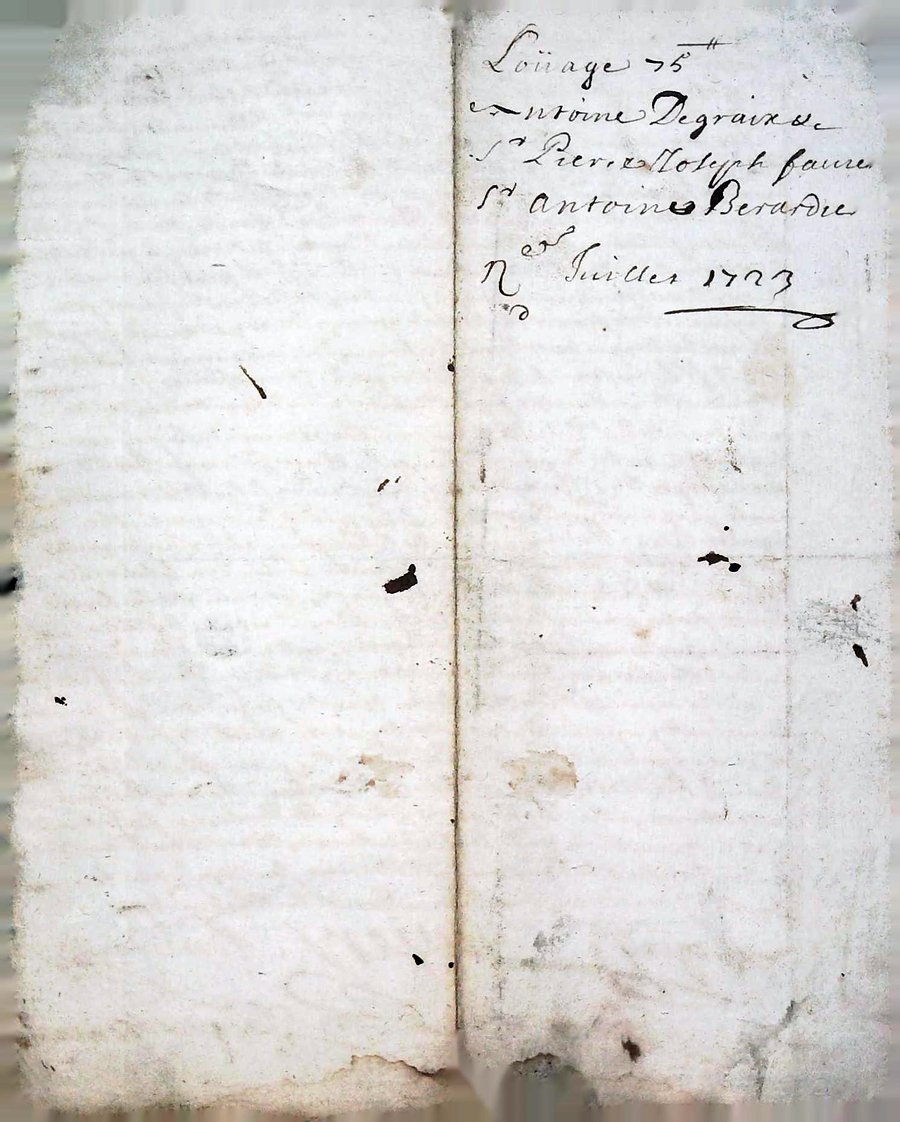 Loüage 75ᵗᵗ
Antoine Degraix &c
Sr Pierre Joseph faure
Sr Antoine Berardie
Juillet 1723